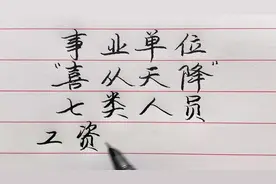 事业单位
"喜从天降"
七类人员
工资